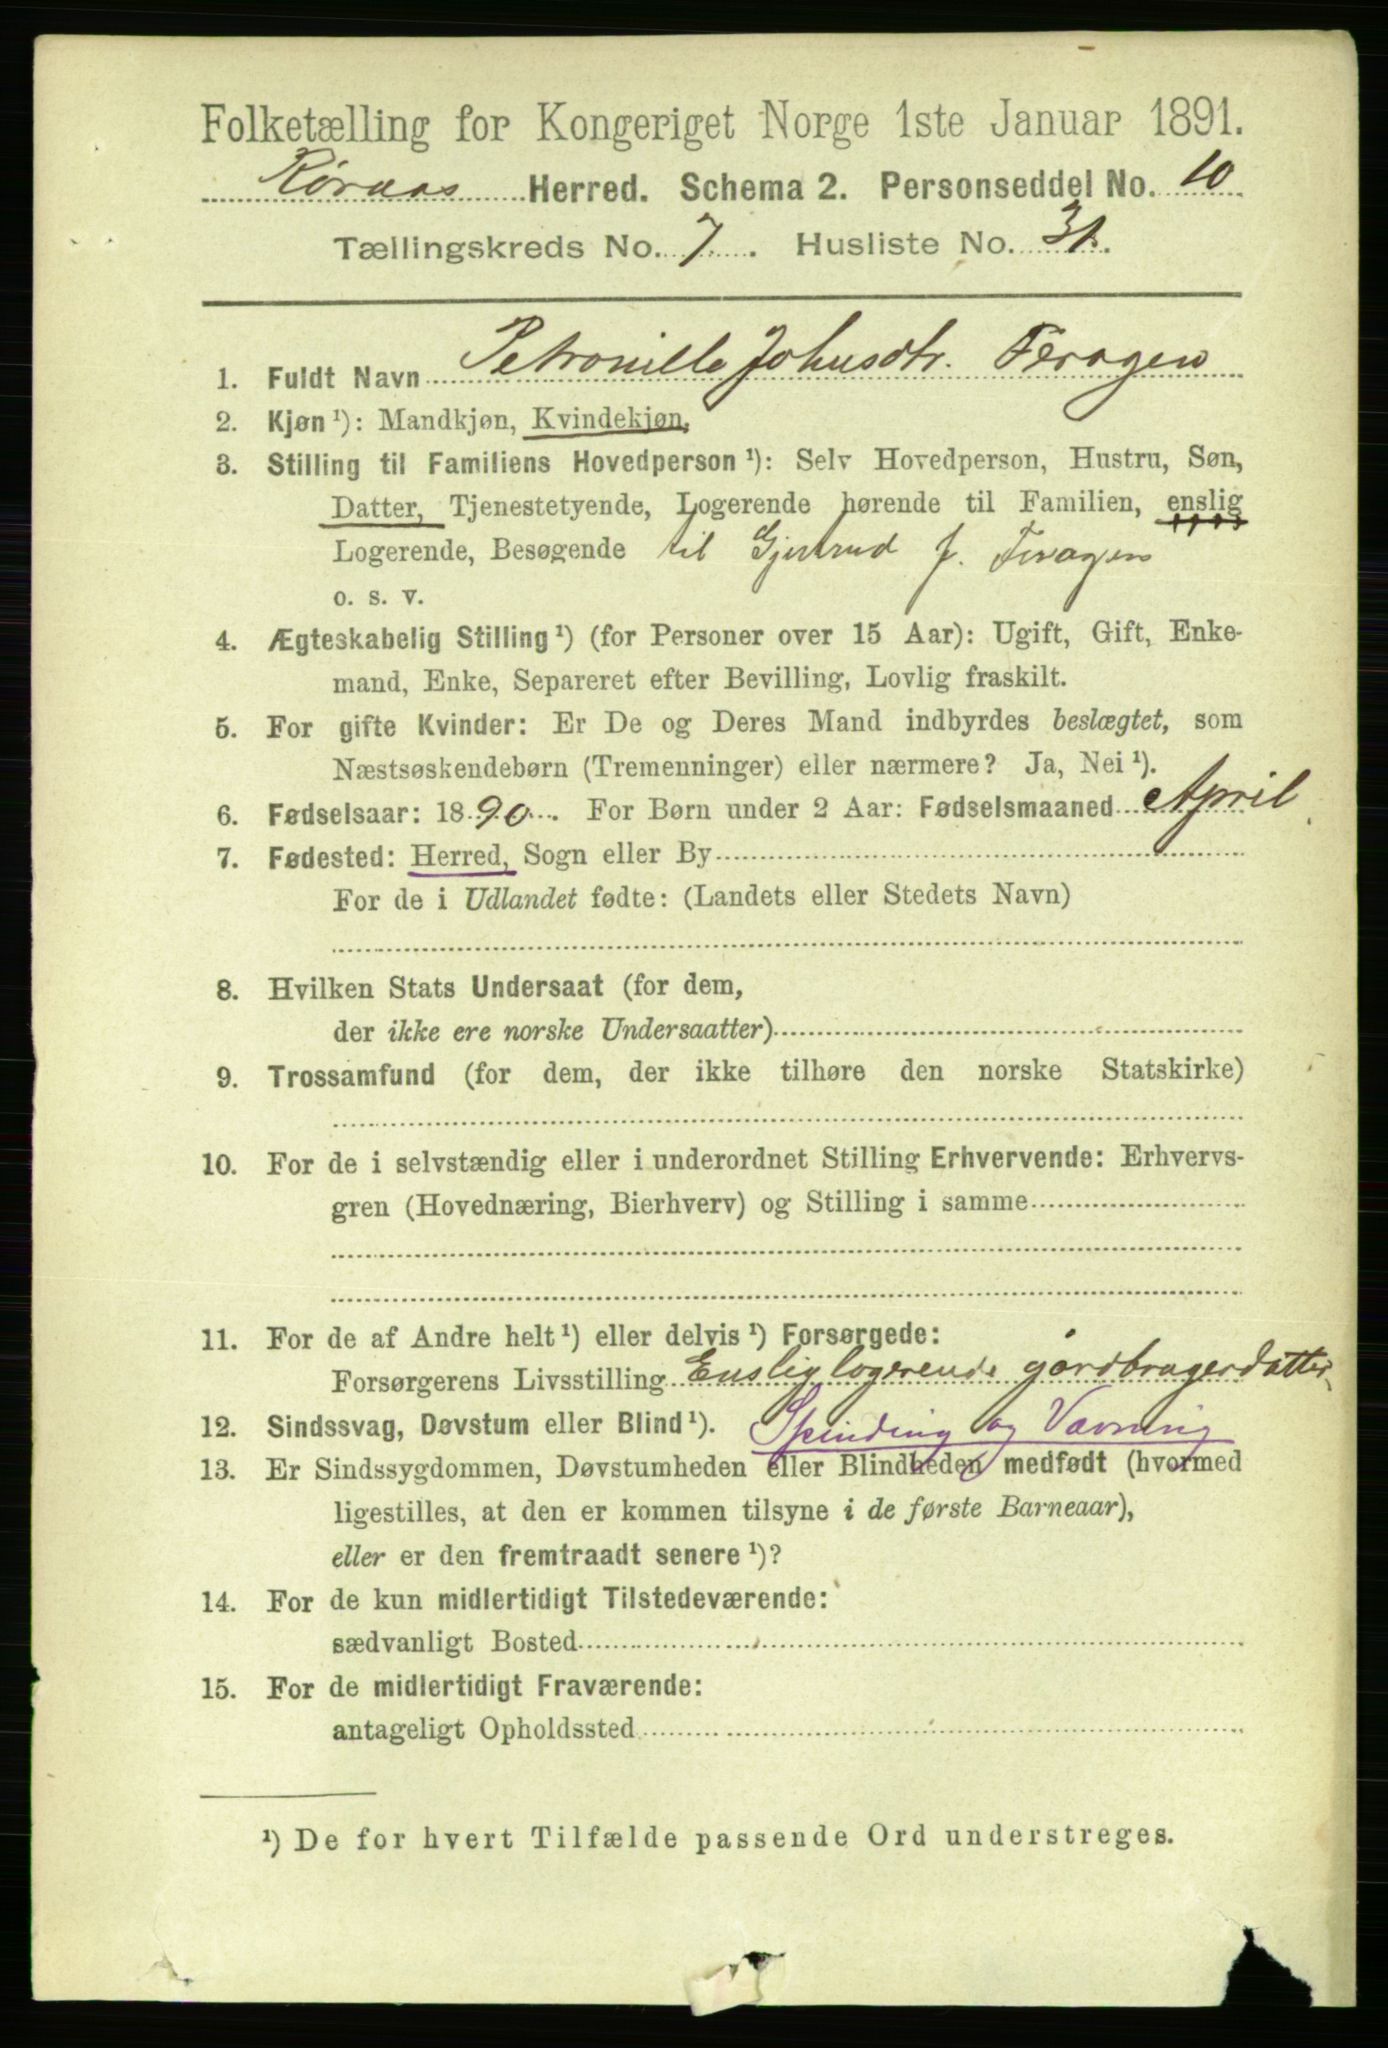 Folketælling for Kongeriget Norge 1ste Januar 1891.
Røraas Herred. Schema 2. Personseddel No. 10
Tællingskreds No. 7. Husliste No. 31.
1. Fuldt Navn Petronille Johnsdtr. Feragen
2. Kjøn ¹): Mandkjøn, Kvindekjøn.
3. Stilling til Familiens Hovedperson ¹): Selv Hovedperson, Hustru, Søn,
Datter, Tjenestetyende, Logerende hørende til Familien, enslig
Logerende, Besøgende til Gjertrud J. Feragen
o. s. v.
4. Ægteskabelig Stilling ¹) (for Personer over 15 Aar): Ugift, Gift, Enke-
mand, Enke, Separeret efter Bevilling, Lovlig fraskilt.
5. For gifte Kvinder: Er De og Deres Mand indbyrdes beslægtet, som
Næstsøskendebørn (Tremenninger) eller nærmere? Ja, Nei ¹).
6. Fødselsaar: 1890. For Børn under 2 Aar: Fødselsmaaned April
7. Fødested: Herred, Sogn eller By
For de i Udlandet fødte: (Landets eller Stedets Navn)
8. Hvilken Stats Undersaat (for dem,
der ikke ere norske Undersaatter)
9. Trossamfund (for dem, der ikke tilhøre den norske Statskirke)
10. For de i selvstændig eller i underordnet Stilling Erhvervende: Erhvervs-
gren (Hovednæring, Bierhverv) og Stilling i samme
11. For de af Andre helt ¹) eller delvis ¹) Forsørgede:
Forsørgerens Livsstilling Enslig logerende gårdbrugerdatter
12. Sindssvag, Døvstum eller Blind ¹). Spinding og Vævning
13. Er Sindssygdommen, Døvstumheden eller Blindheden medfødt (hvormed
ligestilles, at den er kommen tilsyne i de første Barneaar),
eller er den fremtraadt senere ¹)?
14. For de kun midlertidigt Tilstedeværende:
sædvanligt Bosted
15. For de midlertidigt Fraværende:
antageligt Opholdssted
¹) De for hvert Tilfælde passende Ord understreges.